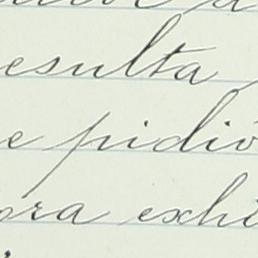 esulta
e pidió
ora exhi